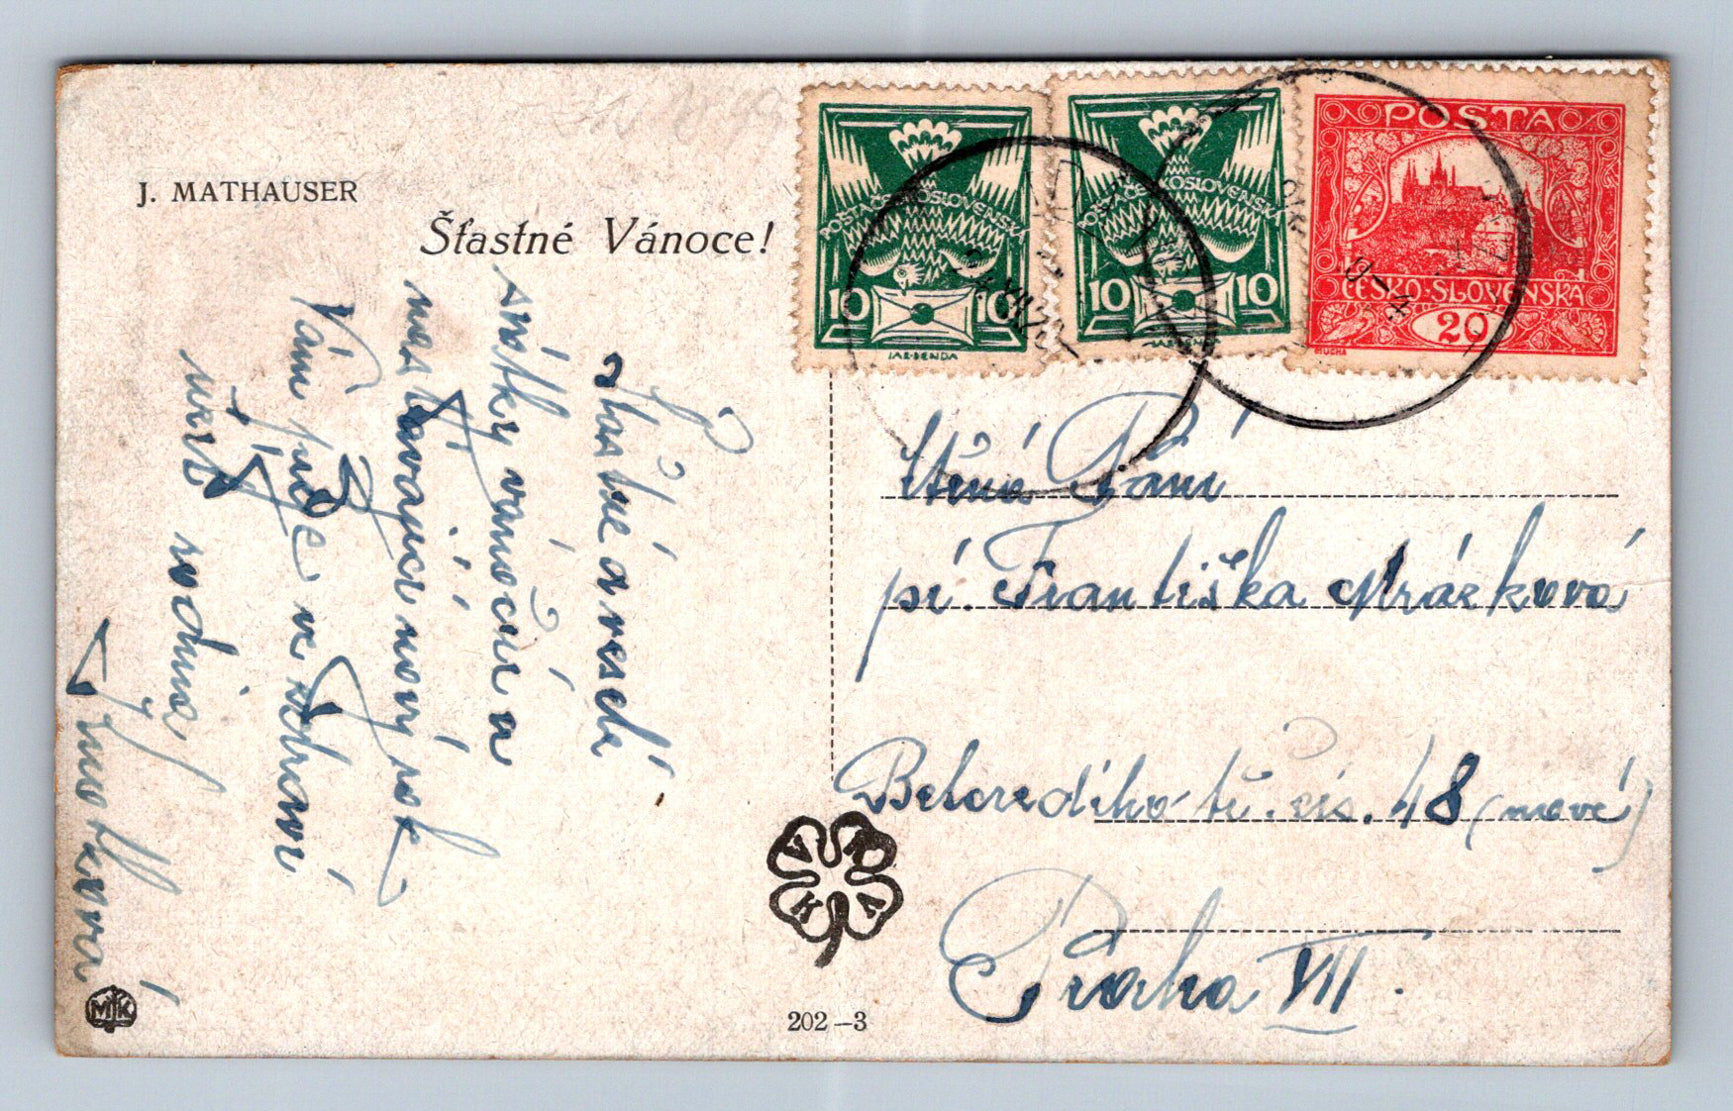 J. MATHAUSER
Šťastné Vánoce!
POSTA ČESKOSLOVENSKÁ
10 10
JAR. BENDA
POSTA ČESKOSLOVENSKÁ
10 10
POSTA
ČESKO-SLOVENSKÁ
20
MUCHA
Šťastné a veselé
svátky vánoční a
nastávající nový rok
Vám přeje ve zdraví
rodina
Ctěná Paní
pí. Františka Mrázková
Belcrediho tř. čís. 48 (nové)
Praha VII.
V K K L
MJK
202–3